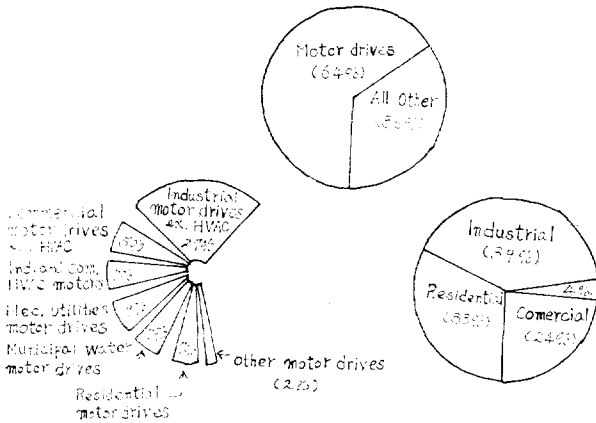 Motor drives
(64%)
All Other
Industrial
motor drives
ex. HVAC
27%
motor drives
HVAC
Ind. and Com.
HVAC motors
Elec. utilities
motor drives
Municipal water
motor drives
Residential
motor drives
Other motor drives
(2%)
Industrial
(39%)
4%
Residential
(33%)
Comercial
(24%)